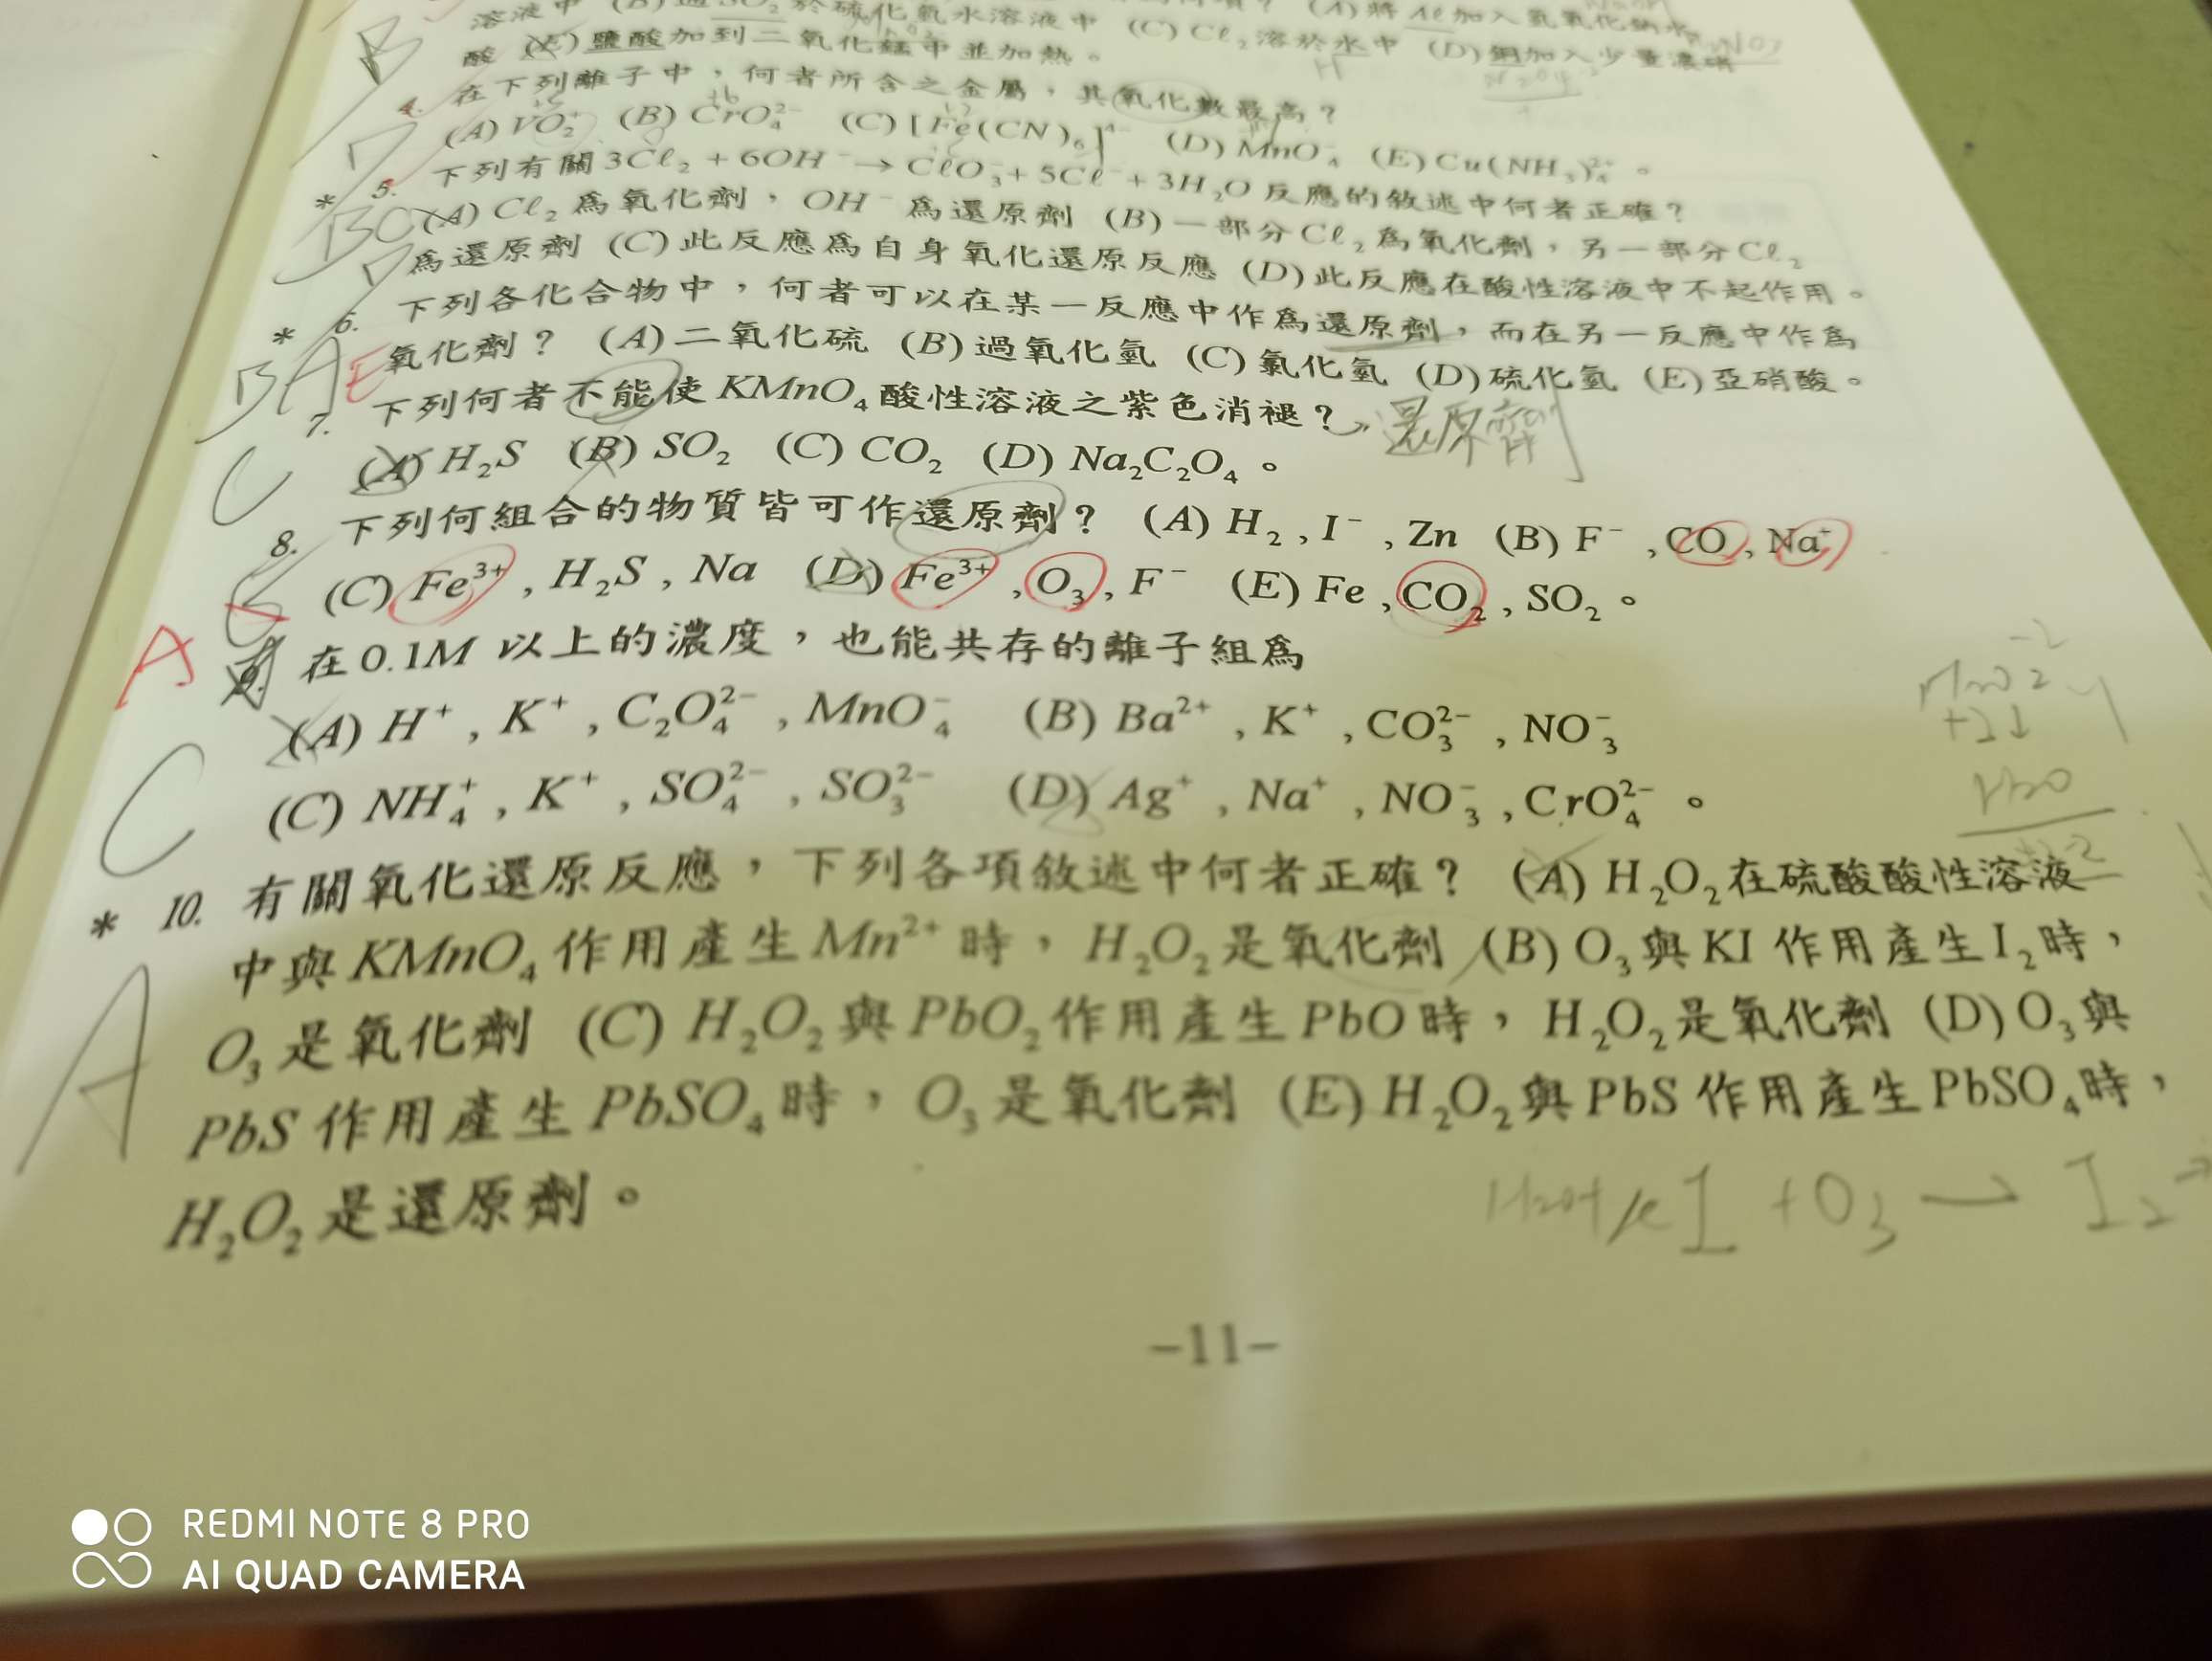 溶液中 (B)通SO₂於硫化氫水溶液中 (C)Cℓ₂溶於水中 (D)銅加入少量濃硝
酸 (E)鹽酸加到二氧化錳中並加熱。
4. 在下列離子中，何者所含之金屬，其氧化數最高？
(A)VO₂⁺ (B)CrO₄²⁻ (C)[Fe(CN)₆]⁴⁻ (D)MnO₄⁻ (E)Cu(NH₃)₄²⁺。
* 5. 下列有關3Cℓ₂+6OH⁻→CℓO₃⁻+5Cℓ⁻+3H₂O反應的敘述中何者正確？
BCD (A)Cℓ₂為氧化劑，OH⁻為還原劑 (B)一部分Cℓ₂為氧化劑，另一部分Cℓ₂
為還原劑 (C)此反應為自身氧化還原反應 (D)此反應在酸性溶液中不起作用。
* 6. 下列各化合物中，何者可以在某一反應中作為還原劑，而在另一反應中作為
BAE 氧化劑？ (A)二氧化硫 (B)過氧化氫 (C)氯化氫 (D)硫化氫 (E)亞硝酸。
7. 下列何者不能使KMnO₄酸性溶液之紫色消褪？ 還原劑
C (A)H₂S (B)SO₂ (C)CO₂ (D)Na₂C₂O₄。
8. 下列何組合的物質皆可作還原劑？ (A)H₂,I⁻,Zn (B)F⁻,CO,Na⁺
(C)Fe³⁺,H₂S,Na (D)Fe³⁺,O₃,F⁻ (E)Fe,CO₂,SO₂。
A 9. 在0.1M 以上的濃度，也能共存的離子組為
(A)H⁺,K⁺,C₂O₄²⁻,MnO₄⁻ (B)Ba²⁺,K⁺,CO₃²⁻,NO₃⁻
C (C)NH₄⁺,K⁺,SO₄²⁻,SO₃²⁻ (D)Ag⁺,Na⁺,NO₃⁻,CrO₄²⁻。
* 10. 有關氧化還原反應，下列各項敘述中何者正確？ (A)H₂O₂在硫酸酸性溶液
中與KMnO₄作用產生Mn²⁺時，H₂O₂是氧化劑 (B)O₃與KI作用產生I₂時，
A O₃是氧化劑 (C)H₂O₂與PbO₂作用產生PbO時，H₂O₂是氧化劑 (D)O₃與
PbS作用產生PbSO₄時，O₃是氧化劑 (E)H₂O₂與PbS作用產生PbSO₄時，
H₂O₂是還原劑。
I + O₃ → I₂
-11-
REDMI NOTE 8 PRO
AI QUAD CAMERA